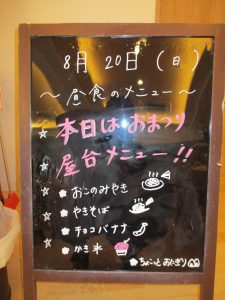 8月 20日 (日)
～昼食のメニュー～
☆本日はおまつり
☆屋台メニュー!!
☆●おこのみやき
☆●やきそば
☆●チョコバナナ
☆●かき氷
●ちょこっとおにぎり